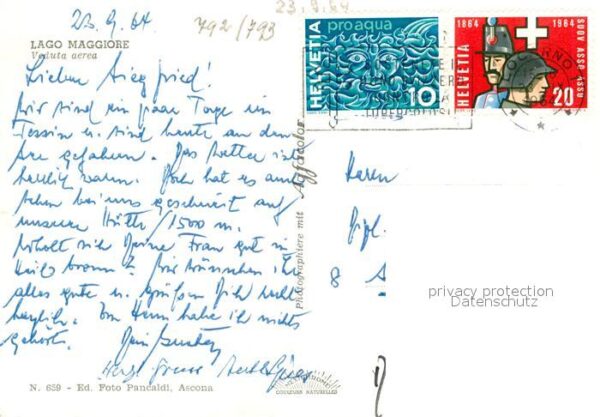 23.9.64
792/793
23.9.64
LAGO MAGGIORE
Veduta aerea
Lieber Siegfried!
Wir sind ein paar Tage im
Tessin u. sind heute an den
See gefahren. Das Wetter ist
herrlich warm. Doch hat es
schon bei uns geschneit auf
unserer Hütte/1500 m.
Erholt sich Deine Frau gut in
Heilbronn? Wir wünschen ihr
alles gute u. grüßen Dich recht
herzlich. Von habe ich nichts
gehört. Dein
Herzl. Grüsse
N. 639 - Ed. Foto Pancaldi, Ascona
COULEURS NATURELLES
Photographiere mit Agfacolor
HELVETIA
pro aqua
10
1864 1964
HELVETIA
SUOV ASSP ASSU
20
LOCARNO
TUBERCOLOSI
Herrn
Dipl.
8
privacy protection
Datenschutz